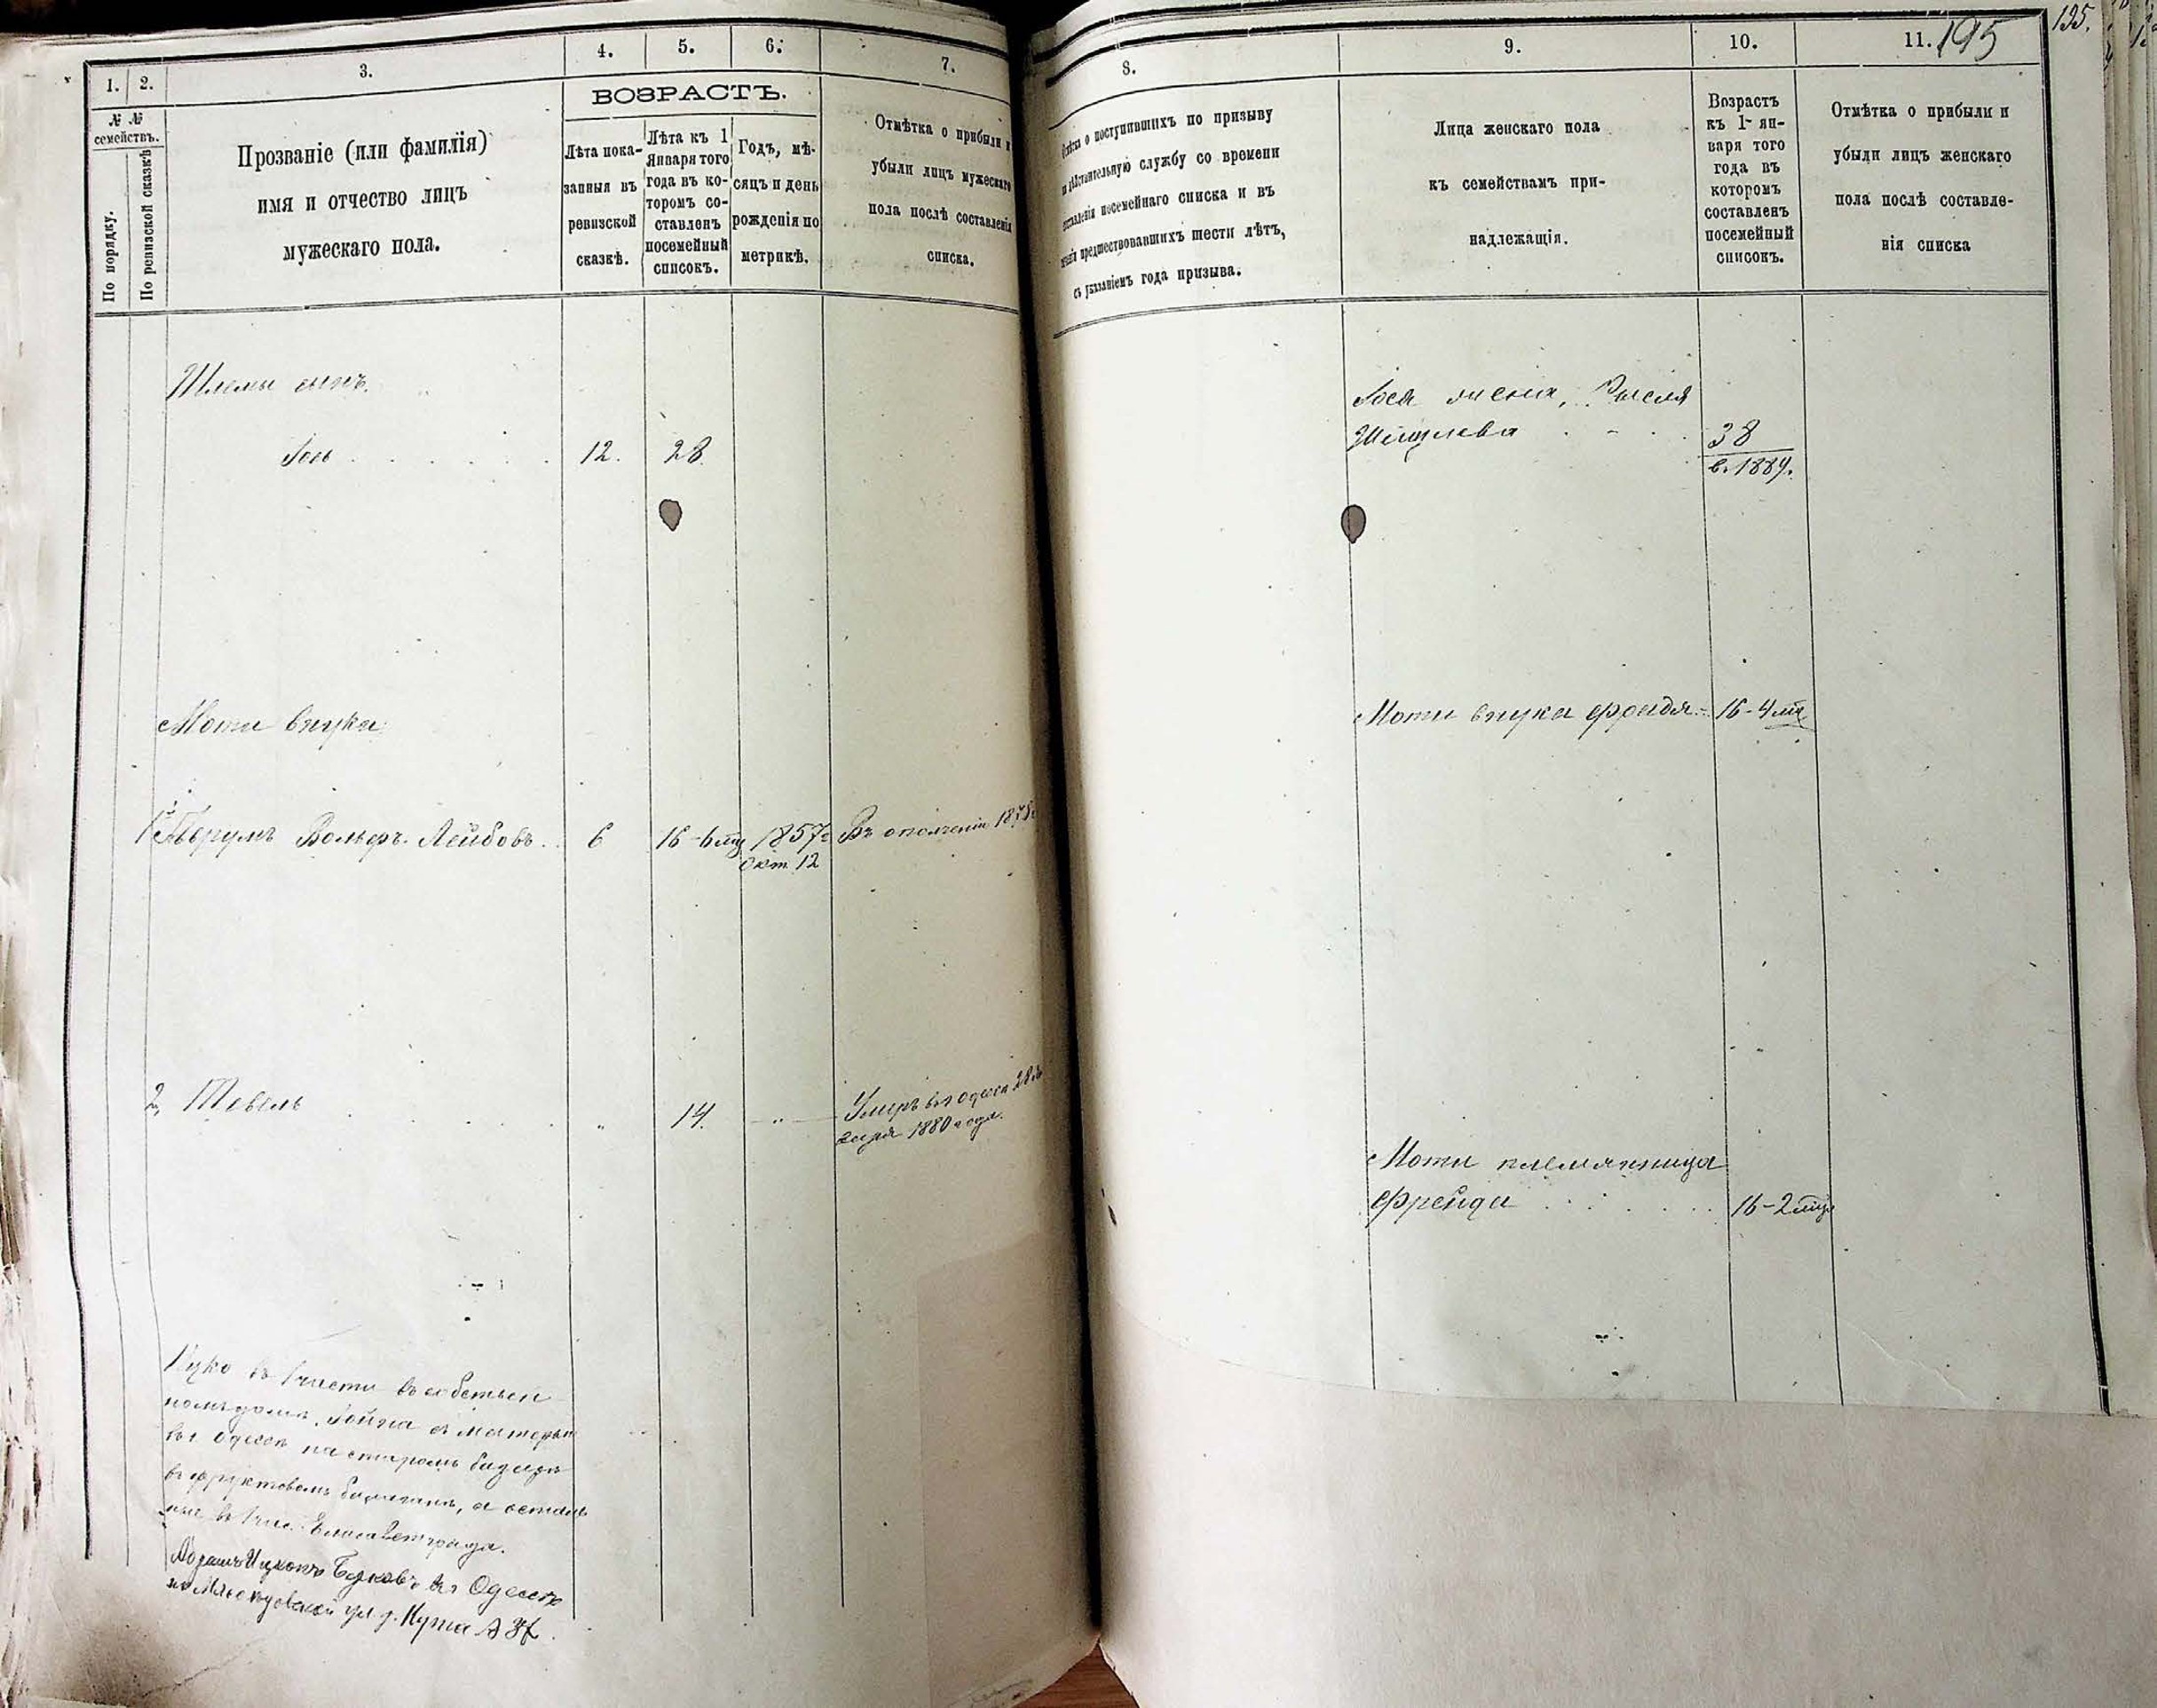 1. 2. 3. 4. 5. 6. 7.
№ № семействъ.
По порядку.
По ревизской сказкѣ
Прозваніе (или фамилія)
имя и отчество лицъ
мужескаго пола.
ВОЗРАСТЪ.
Лѣта пока-
занныя въ
ревизской
сказкѣ.
Лѣта къ 1
Января того
года въ ко-
торомъ со-
ставленъ
посемейный
списокъ.
Годъ, мѣ-
сяцъ и день
рожденія по
метрикѣ.
Отмѣтка о прибыли и
убыли лицъ мужескаго
пола послѣ составленія
списка.
Шлемы сынъ.
Іось 12. 28.
Моти внуки
1 Вольфъ Лейбовъ 6 16-6 мц 1857 г Въ ополченіи
Окт. 12
2, Тевель " 14. " Умеръ въ г Одессѣ 28
1880 года.
Ицко въ части въ собствен
номъ домѣ, съ матерью
въ г Одессѣ на старомъ базарѣ
въ фруктовомъ а осталь
ные въ Елисаветграда.
въ Одессѣ
ул. д.
8. 9. 10. 11. 195
195.
о поступившихъ по призыву
дѣйствительную службу со времени
посемейнаго списка и въ
предшествовавшихъ шести лѣтъ,
съ указаніемъ года призыва.
Лица женскаго пола
къ семействамъ при-
надлежащія.
Возрастъ
къ 1 ян-
варя того
года въ
которомъ
составленъ
посемейный
списокъ.
Отмѣтка о прибыли и
убыли лицъ женскаго
пола послѣ составле-
нія списка
Іося жена, Рысля
38
в. 1884.
Моти внука Фрейдя 16-4 мц
Моти племянница
Фрейда 16-2 мц.